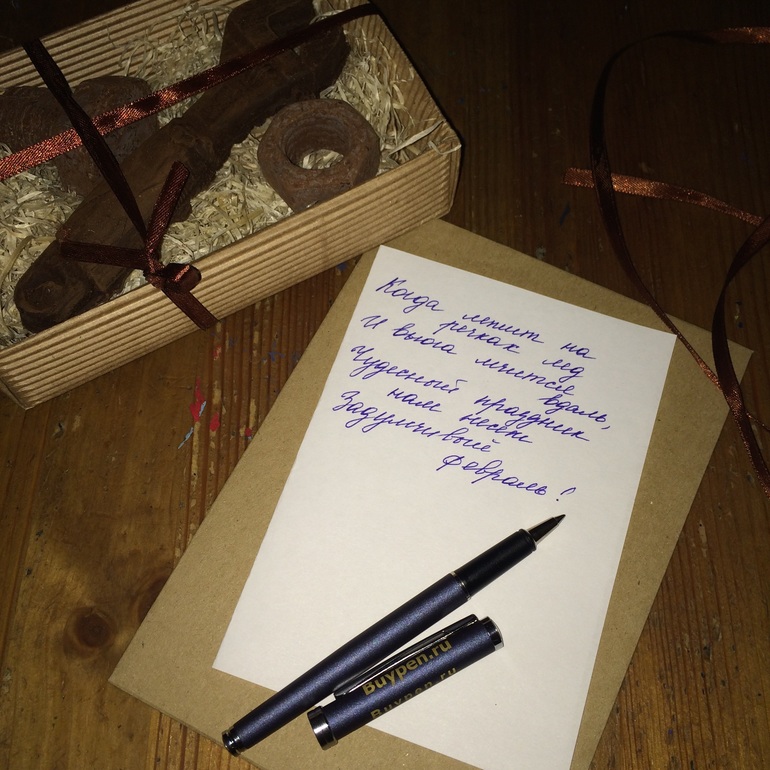 Когда лепит на
речках лёд
И вьюга мчится
вдаль,
Чудесный праздник
нам несёт
Задумчивый
февраль!
Buypen.ru
Buypen.ru